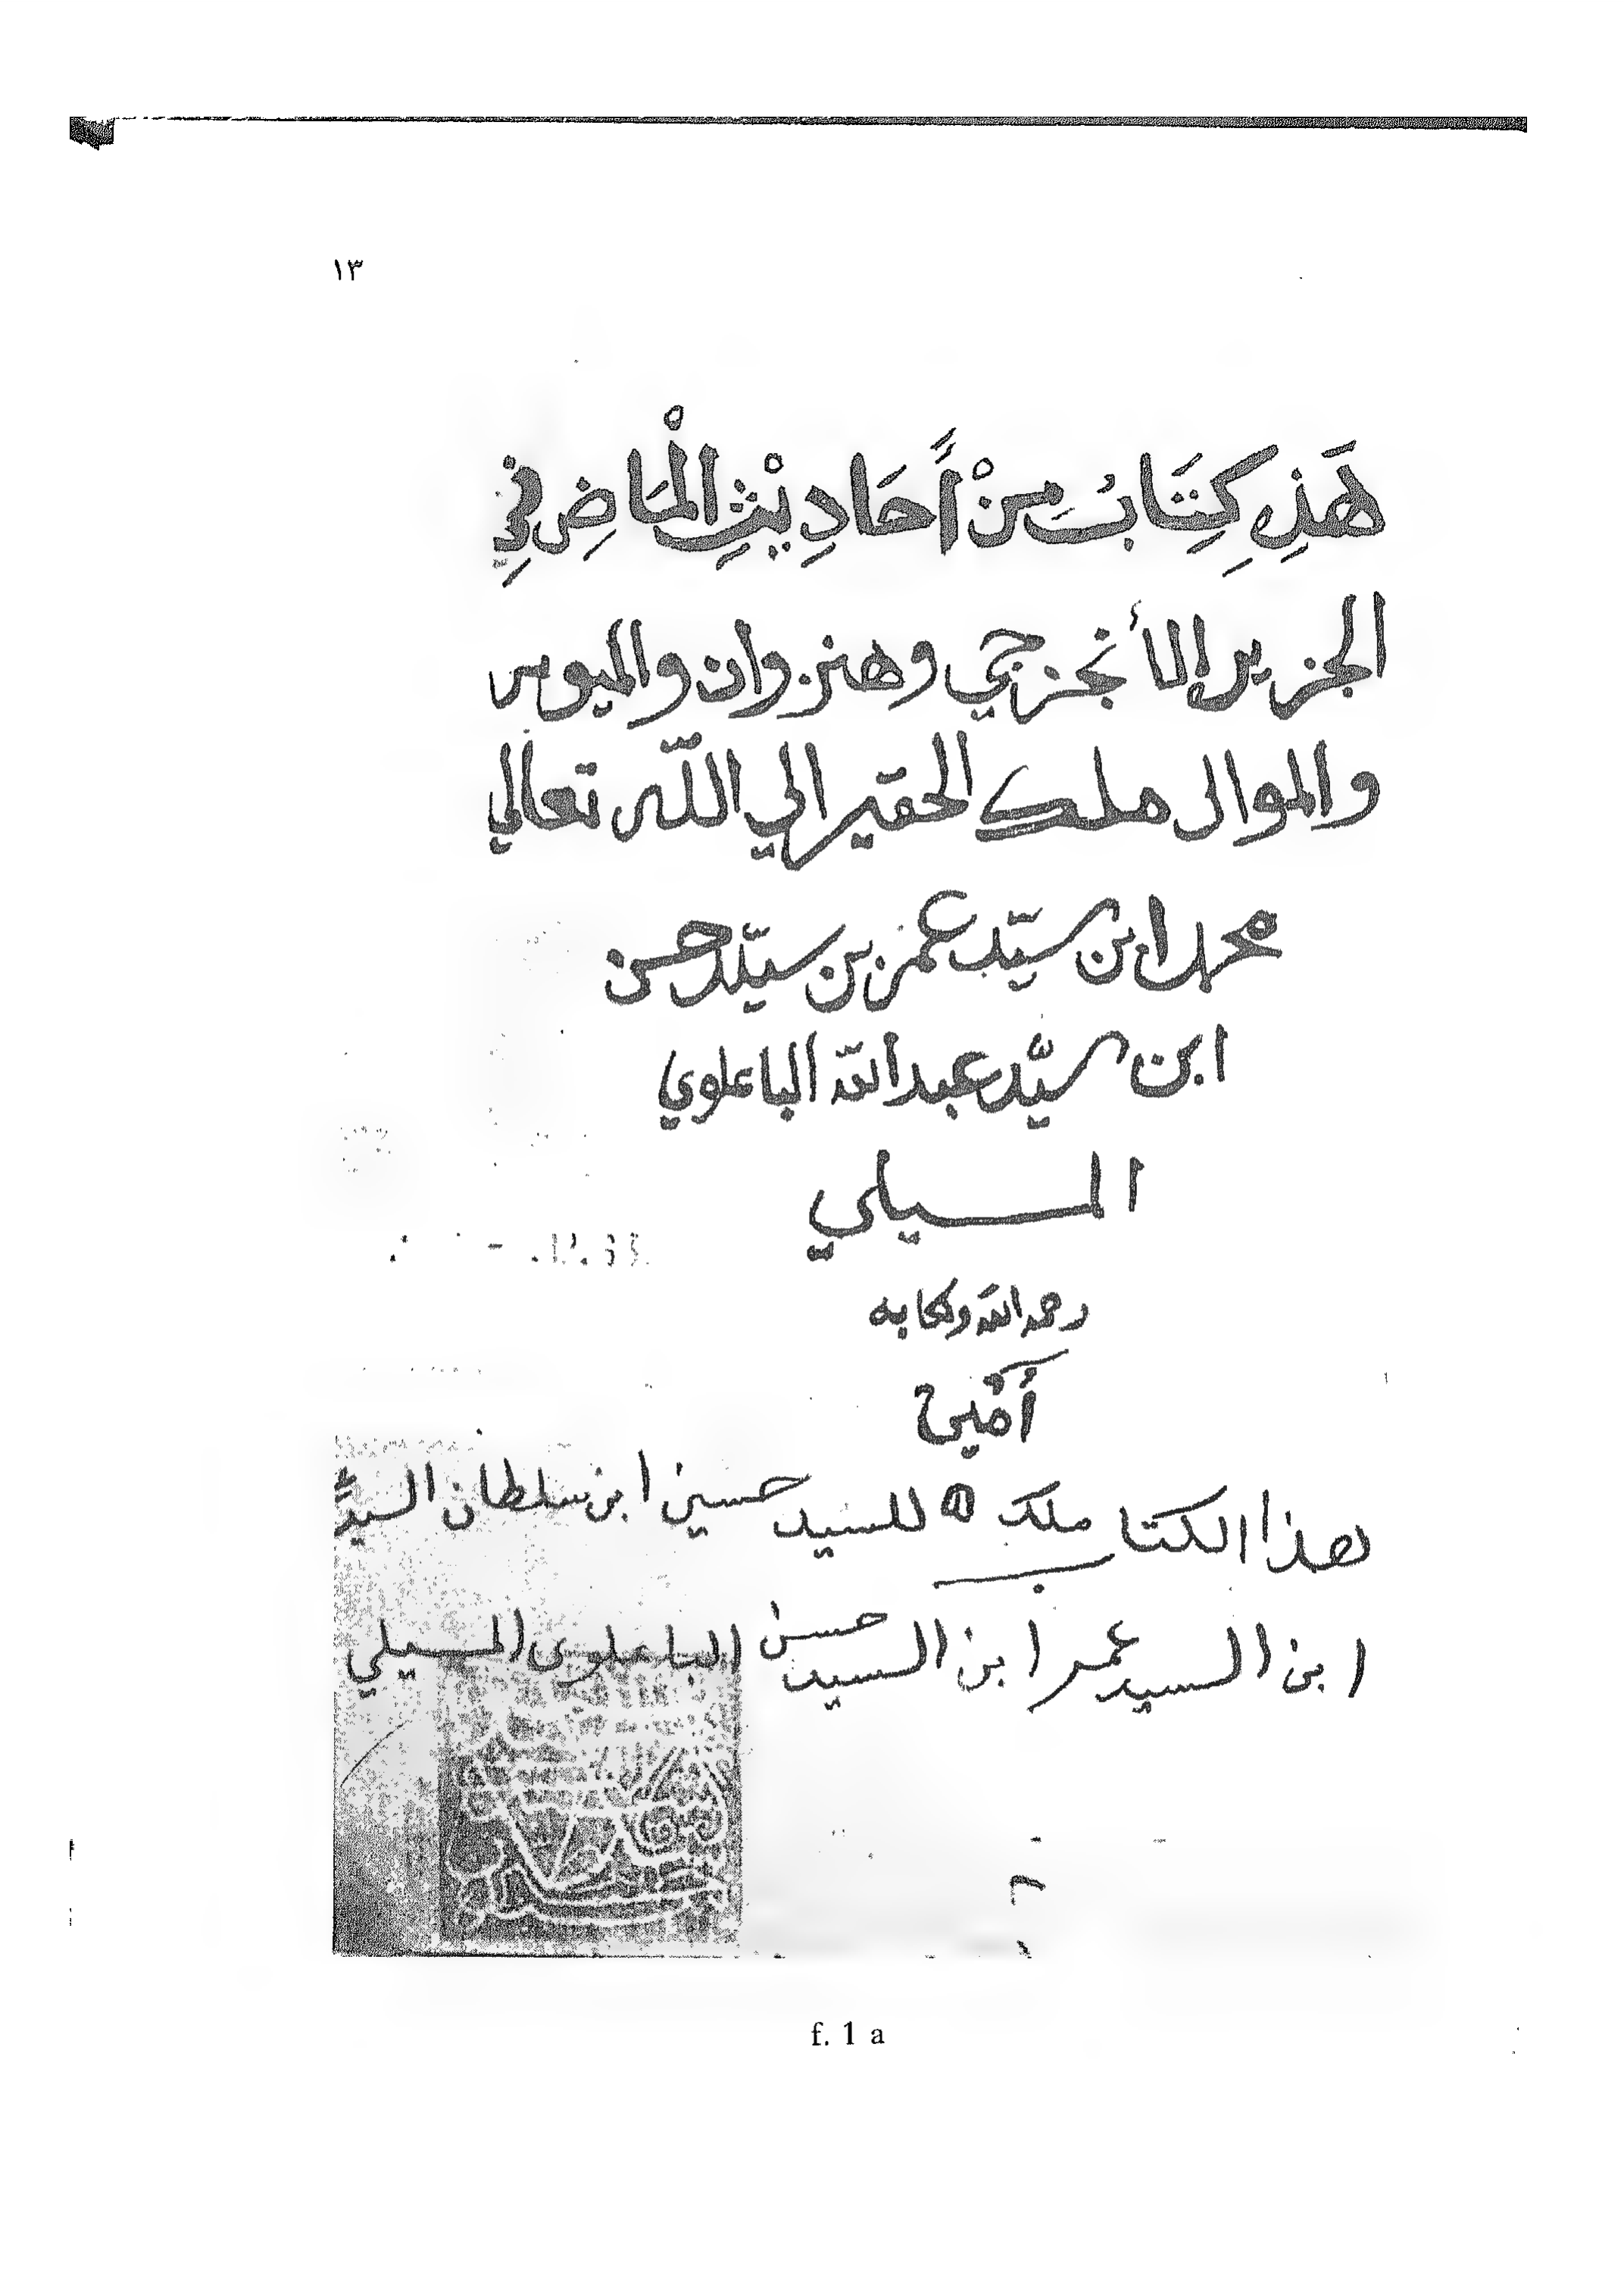 ١٣
هَذِهِ كِتَابُ مِنْ أَحَادِيْثِ الْمَاضِ فِي
الجزير إلا أنجزجي وهنزوان والميوس
والموالى ملك الحقير الي اللّه تعالي
محمد ابن سيّد عمر بن سيّد حسن
ابن سيّد عبد اللّه الباعلوي
المسيلي
رحمه الله وكابه
أمين
هذا الكتاب ملك للسيد حسين ابن سلطان السيد
ابن السيد عمر ابن السيد حسن الباعلوى المسيلي
f. 1 a